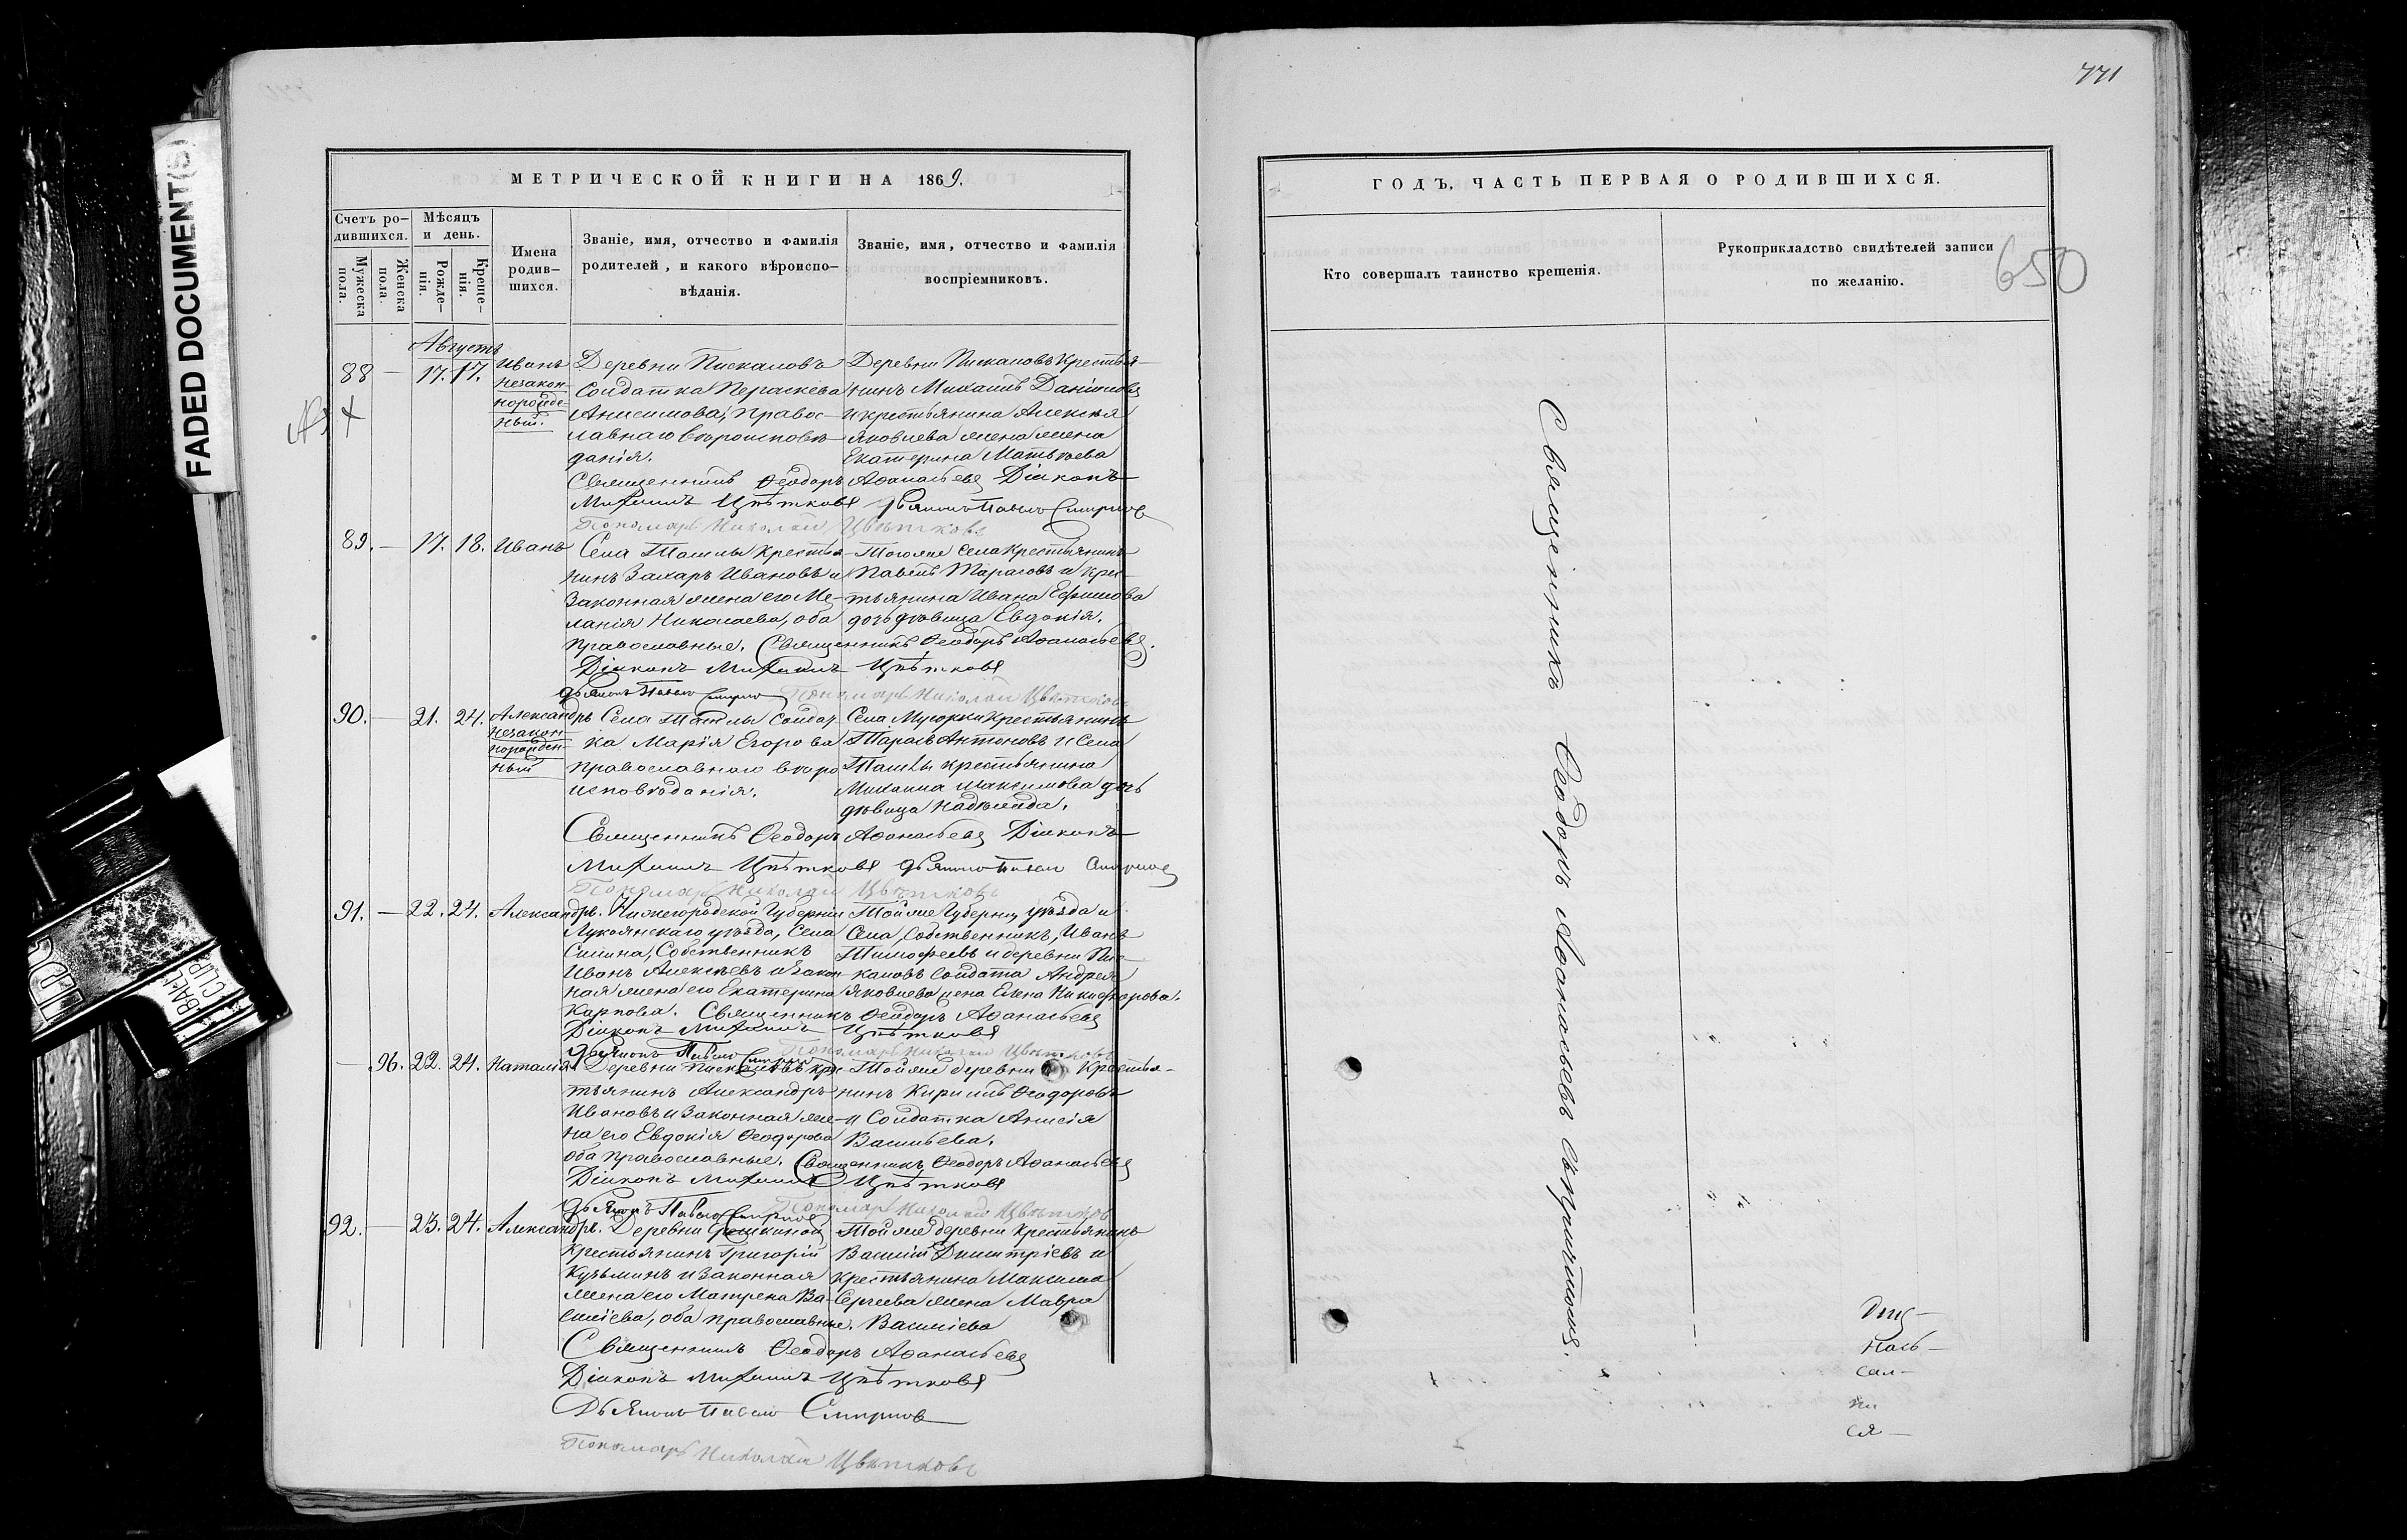 771
FADED DOCUMENT(S)
МЕТРИЧЕСКОЙ КНИГИ НА 1869.
Счетъ родившихся.
Мужеска пола.
Женска пола.
Мѣсяцъ и день.
Рожденія.
Крещенія.
Имена родив-
шихся.
Званіе, имя, отчество и фамилія
родителей, и какого вѣроиспо-
вѣданія.
Званіе, имя, отчество и фамилія
воспріемниковъ.
Августъ
88 — 17. 17. Иванъ незаконнорожденный.
Деревни Пискаловъ
Солдатка Параскева
Анисимова, правос-
лавнаго вѣроисповѣ-
данія.
Деревни Пискаловъ Крестья-
нинъ Михаилъ Даниловъ
и крестьянина Алексѣя
Яковлева жена
Екатерина Матвѣева
Священникъ Ѳеодоръ Аѳанасьевъ Діаконъ
Михаилъ Цвѣтковъ Дьячокъ Павелъ Смирновъ
Пономарь Николай Цвѣтковъ
89. — 17. 18. Иванъ
Села Ташлы крестья-
нинъ Захаръ Ивановъ и
Законная жена его Ме-
ланія Николаева, оба
православные.
Тогоже села Крестьянинъ
Павелъ Тарасовъ и Крес-
тьянина Ивана Ефимова
дочь дѣвица Евдокія.
Священникъ Ѳеодоръ Аѳанасьевъ.
Діаконъ Михаилъ Цвѣтковъ
Дьячокъ Павелъ Смирновъ Пономарь Николай Цвѣтковъ
90. — 21. 24. Александръ незаконнорожденный
Села Ташлы Солдат-
ка Марія Егорова
православнаго вѣро
исповѣданія.
Села Мусорки Крестьянинъ
Тарасъ Антоновъ и Села
Ташлы крестьянина
Михаила Максимова дочь
дѣвица Надежда.
Священникъ Ѳеодоръ Аѳанасьевъ Діаконъ
Михаилъ Цвѣтковъ Дьячокъ Павелъ Смирновъ
Пономарь Николай Цвѣтковъ
91. — 22. 24. Александръ.
Нижегородской Губерніи
Лукоянскаго уѣзда, Села
Силина, Собственникъ
Иванъ Алексѣевъ и закон-
ная жена его Екатерина
Карпова.
Тойже Губерніи, уѣзда и
Села, Собственникъ, Иванъ
Тимофеевъ и деревни Пис-
каловъ Солдата Андрея
Яковлева жена Елена Никифорова.
Священникъ Ѳеодоръ Аѳанасьевъ
Діаконъ Михаилъ Цвѣтковъ
Дьячокъ Павелъ Смирновъ Пономарь Николай Цвѣтковъ
— 96. 22. 24. Наталія
Деревни Пискаловъ крес-
тьянинъ Александръ
Ивановъ и Законная же-
на его Евдокія Ѳеодорова
оба православные.
Тойже деревни Крестья-
нинъ Кириллъ Ѳеодоровъ
и Солдатка Анисія
Васильева.
Священникъ Ѳеодоръ Аѳанасьевъ
Діаконъ Михаилъ Цвѣтковъ
Дьячокъ Павелъ Смирновъ Пономарь Николай Цвѣтковъ
92. — 23. 24. Александръ.
Деревни
Крестьянинъ Григорій
Кузьминъ и Законная
жена его Матрена Ва-
силіева, оба православные.
Тойже деревни Крестьянинъ
Василій Димитріевъ и
Крестьянина Максима
Сергеева жена Мавра
Василіева
Священникъ Ѳеодоръ Аѳанасьевъ
Діаконъ Михаилъ Цвѣтковъ
Дьячокъ Павелъ Смирновъ
Пономарь Николай Цвѣтковъ
ГОДЪ, ЧАСТЬ ПЕРВАЯ О РОДИВШИХСЯ.
Кто совершалъ таинство крещенія.
Рукоприкладство свидѣтелей записи
по желанію.
650
Священникъ Ѳеодоръ Аѳанасьевъ съ причтомъ.